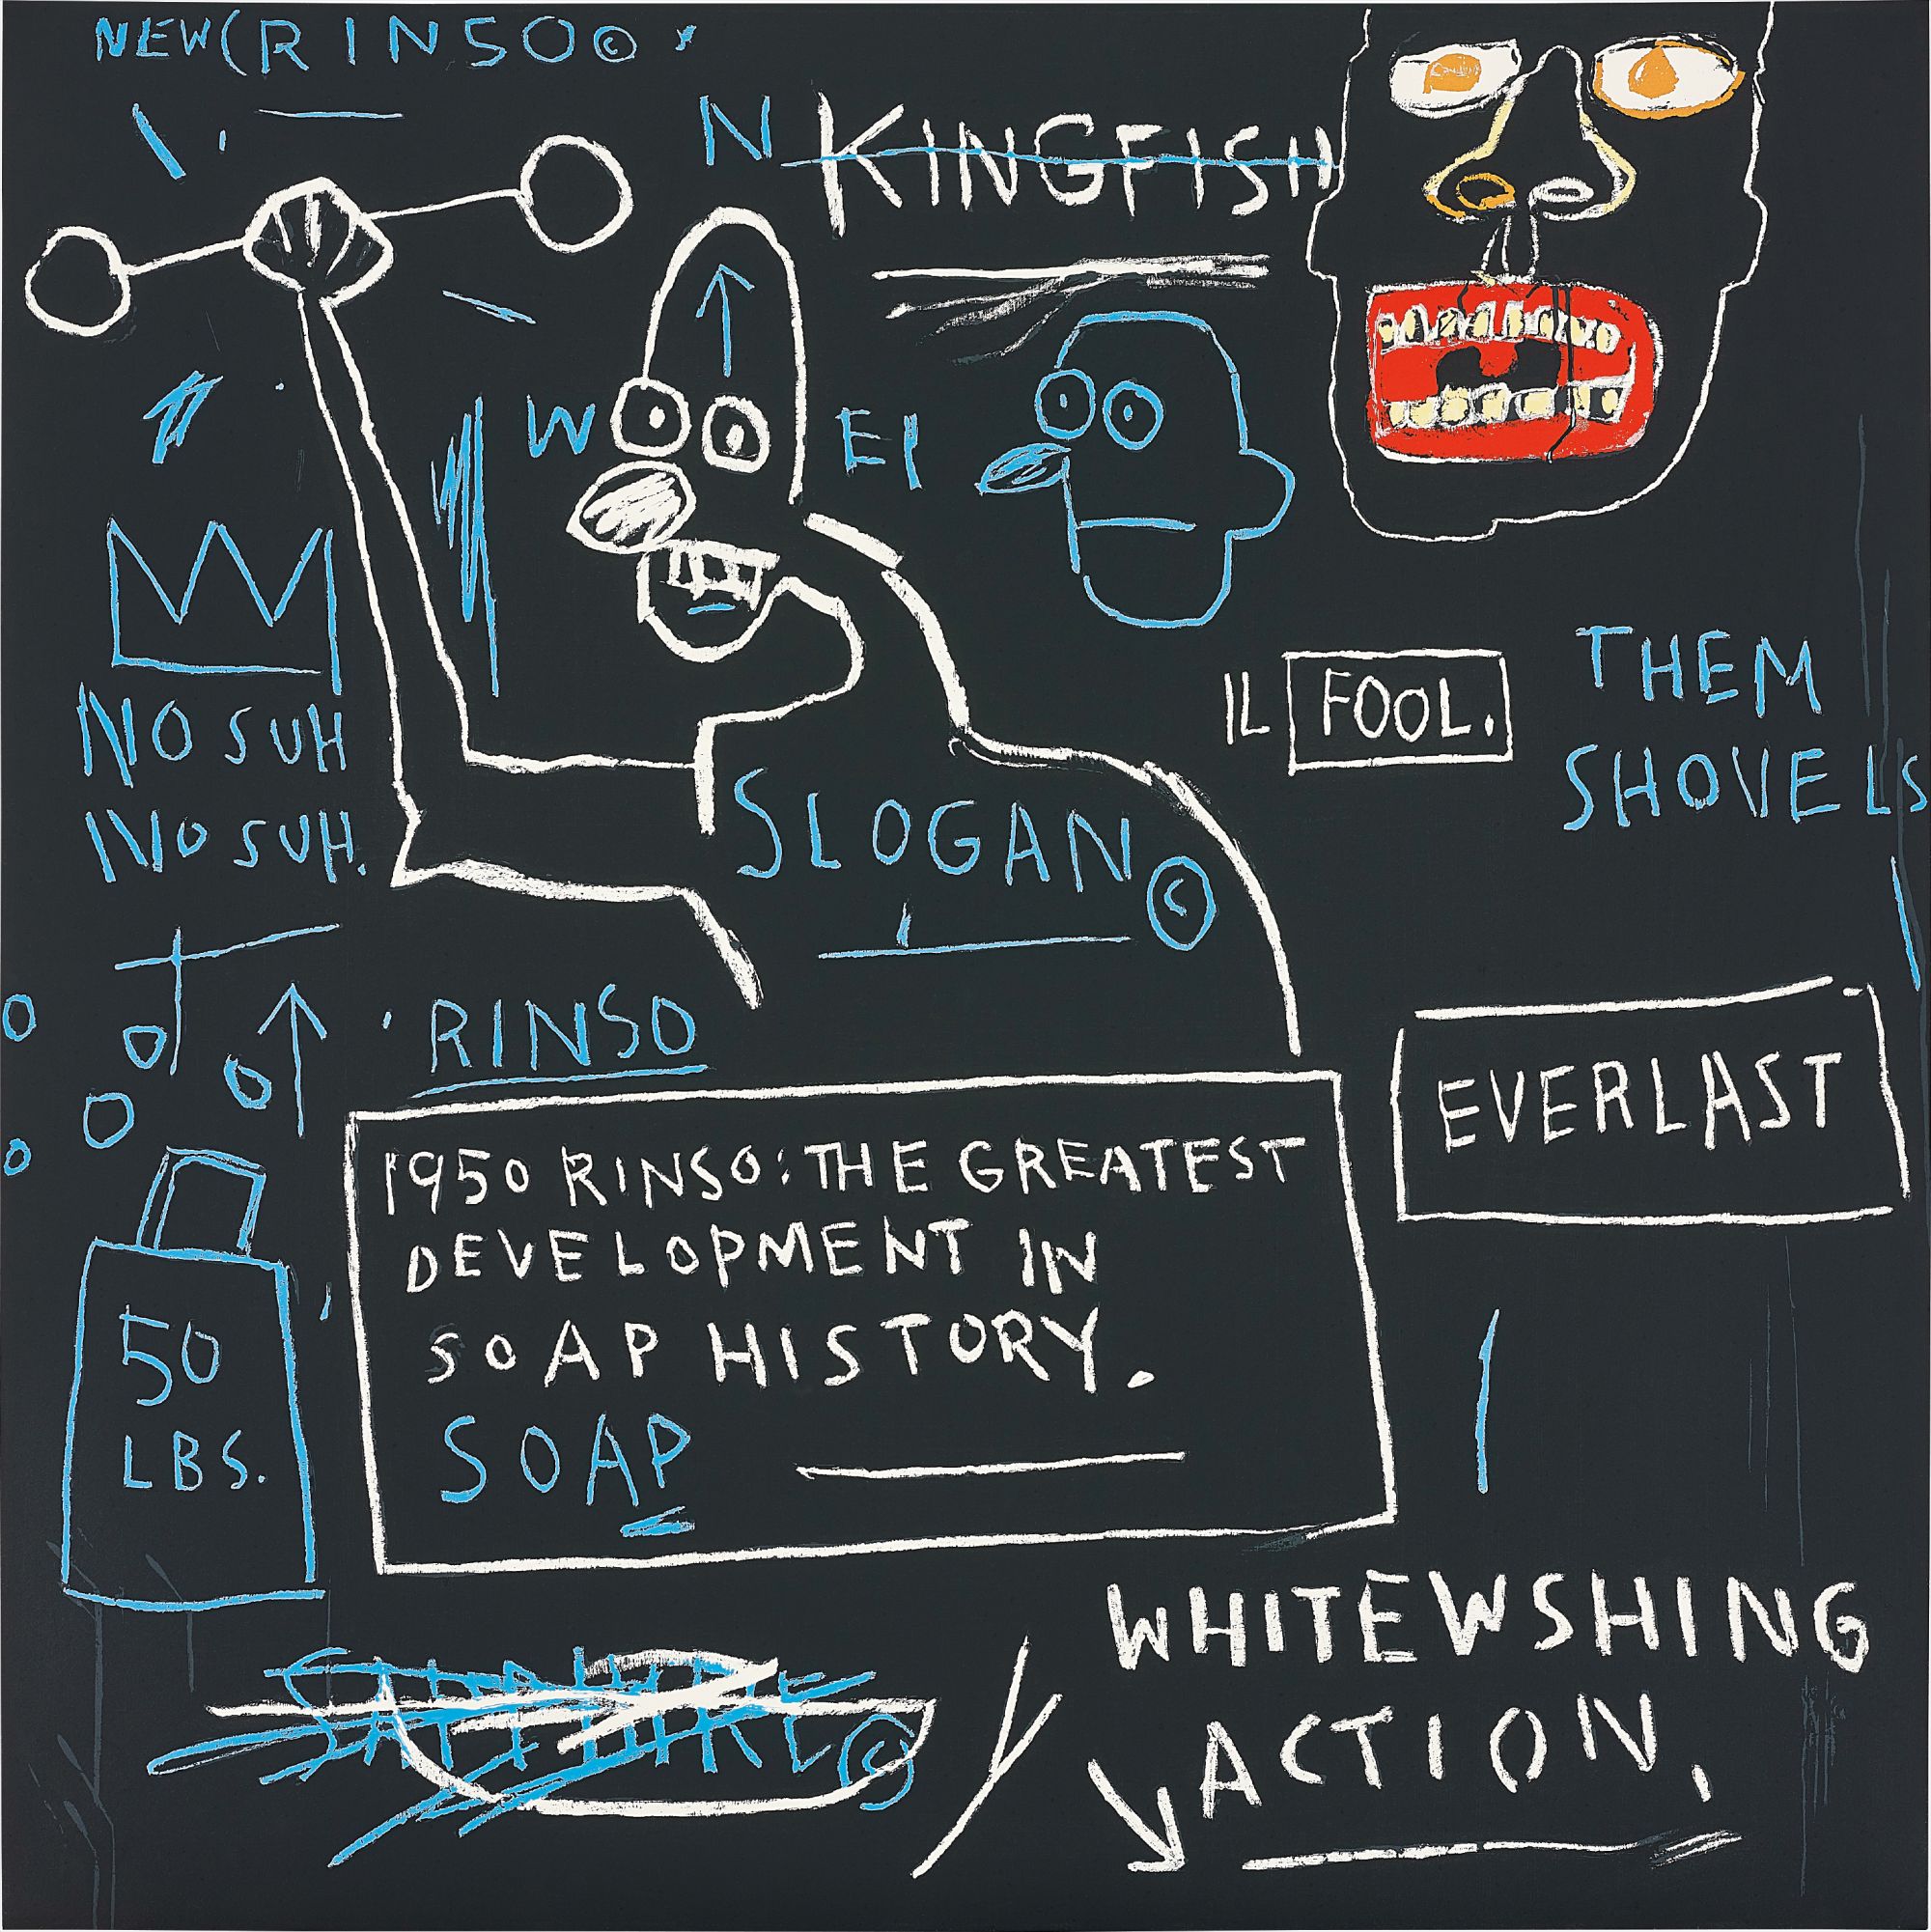 NEW(RINSO©
N KINGFISH
W EI
NO SUH
NO SUH.
IL FOOL.
THEM
SHOVELS
SLOGAN©
RINSO
EVERLAST
1950 RINSO: THE GREATEST
DEVELOPMENT IN
SOAP HISTORY.
SOAP
50
LBS.
©
WHITEWSHING
ACTION,